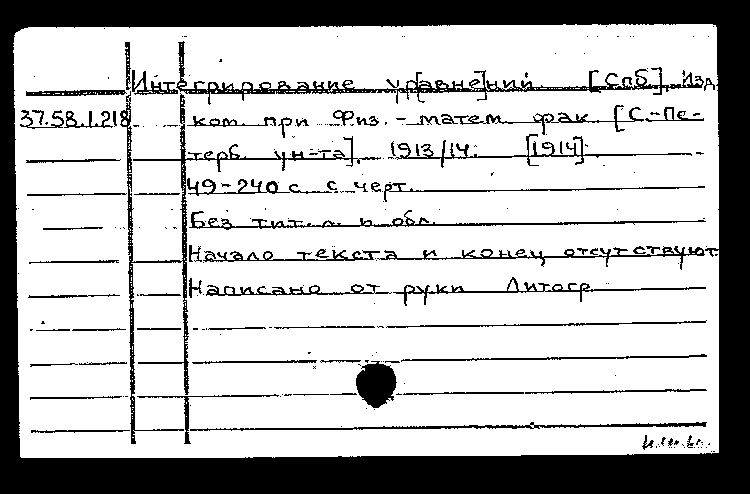 Интегрирование ур[авне]ний. [Спб], Изд.
37.58.1.218 ком. при Физ.-матем. фак. [С.-Пе-
терб. ун-та], 1913/14. [1914].
49-240 с. с черт.
Без тит. л. и обл.
Начало текста и конец отсутствуют
Написано от руки Литогр.